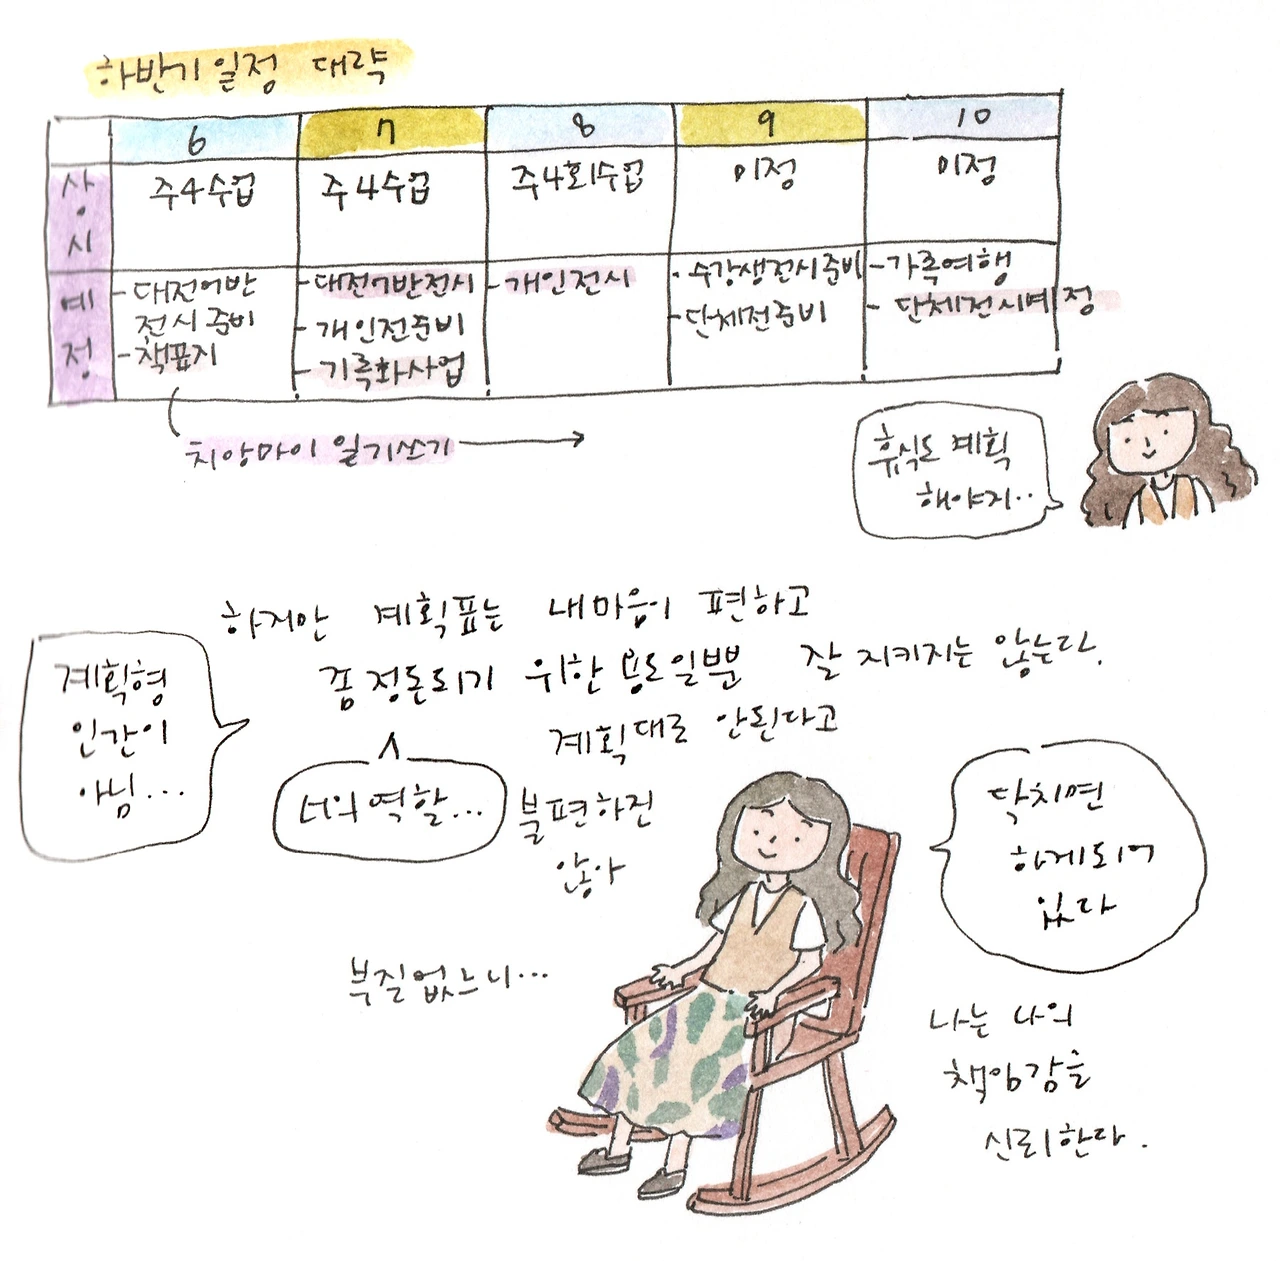 하반기 일정 대략
6 7 8 9 10
상시
주4수업 주4수업 주4회수업 미정 미정
예정
- 대전어반
전시준비
- 책표지
- 대전어반전시
- 개인전준비
- 기록화사업
- 개인전시
· 수강생전시준비
- 단체전준비
- 가족여행
- 단체전시예정
치앙마이 일기쓰기 →
휴식도 계획
해야지..
하지만 계획표는 내마음이 편하고
좀 정돈되기 위한 용도일뿐 잘 지키지는 않는다.
계획형
인간이
아님...
너의 역할...
계획대로 안된다고
불편하진
않아
닥치면
하게되어
있다
부질없느니...
나는 나의
책임감을
신뢰한다.